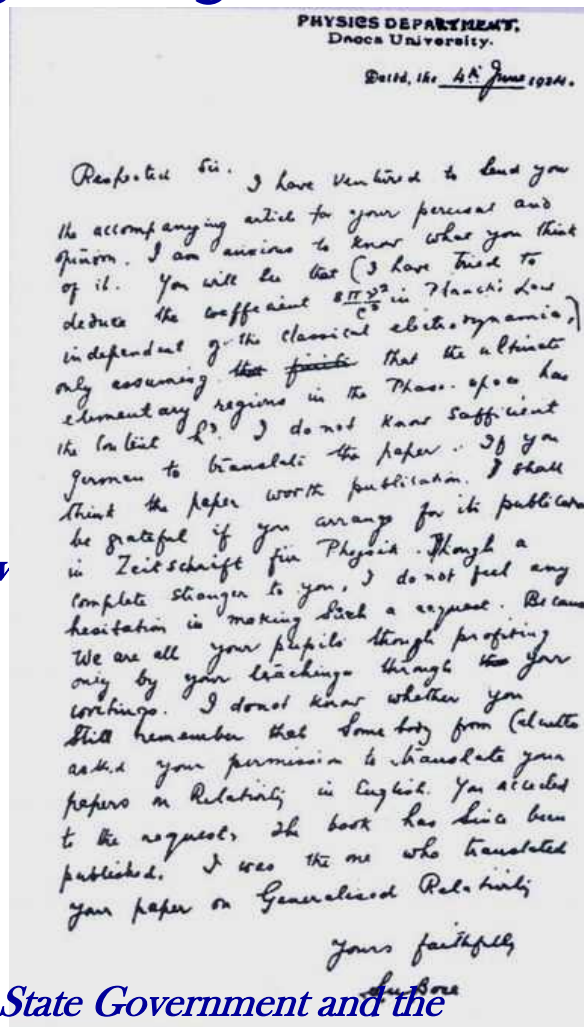 PHYSICS DEPARTMENT,
Dacca University.
Dated, the 4th June 1924.
Respected Sir. I have ventured to send you
the accompanying article for your perusal and
opinion. I am anxious to know what you think
of it. You will see that (I have tried to
deduce the coefficient 8πν²/c³ in Planck's Law
independent of the classical electrodynamics,)
only assuming that the ultimate
elementary regions in the Phase-space has
the content h³. I do not know sufficient
German to translate the paper. If you
think the paper worth publication. I shall
be grateful if you arrange for its publication
in Zeitschrift für Physik. Though a
complete stranger to you, I do not feel any
hesitation in making such a request. Because
We are all your pupils though profiting
only by your teachings through your
writings. I donot know whether you
still remember that Somebody from Calcutta
asked your permission to translate your
papers on Relativity in English. You acceded
to the request. The book has since been
published. I was the one who translated
your paper on Generalised Relativity
Yours faithfully
SnBose
State Government and the